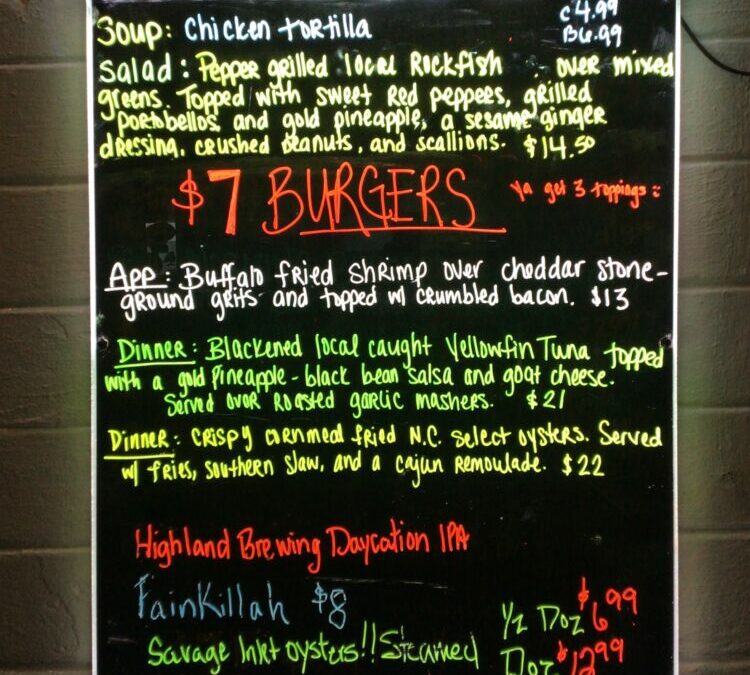 Soup: Chicken tortilla C 4.99
B 6.99
Salad: Pepper grilled local Rockfish over mixed
greens. Topped with sweet Red peppers, grilled
portobellos and gold pineapple, a sesame ginger
dressing, crushed peanuts, and scallions. $14.50
$7 BURGERS Ya get 3 toppings :
App: Buffalo fried shrimp over cheddar stone-
ground grits and topped w/ crumbled bacon. $13
Dinner: Blackened local caught Yellowfin Tuna topped
with a gold pineapple-black bean salsa and goat cheese.
Served over Roasted garlic mashers. $21
Dinner: Crispy cornmeal fried N.C. select oysters. Served
w/ fries, southern slaw, and a cajun remoulade. $22
Highland Brewing Daycation IPA
PainKillah $8
1/2 Doz $6.99
Savage Inlet oysters!! Steamed
Doz $12.99